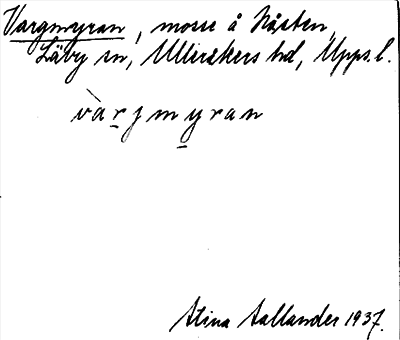 Vargmyran, mosse å Nåsten,
Läby sn, Ulleråkers hd, Upps. l.
vàrjmyran
Stina Aallander 1937.